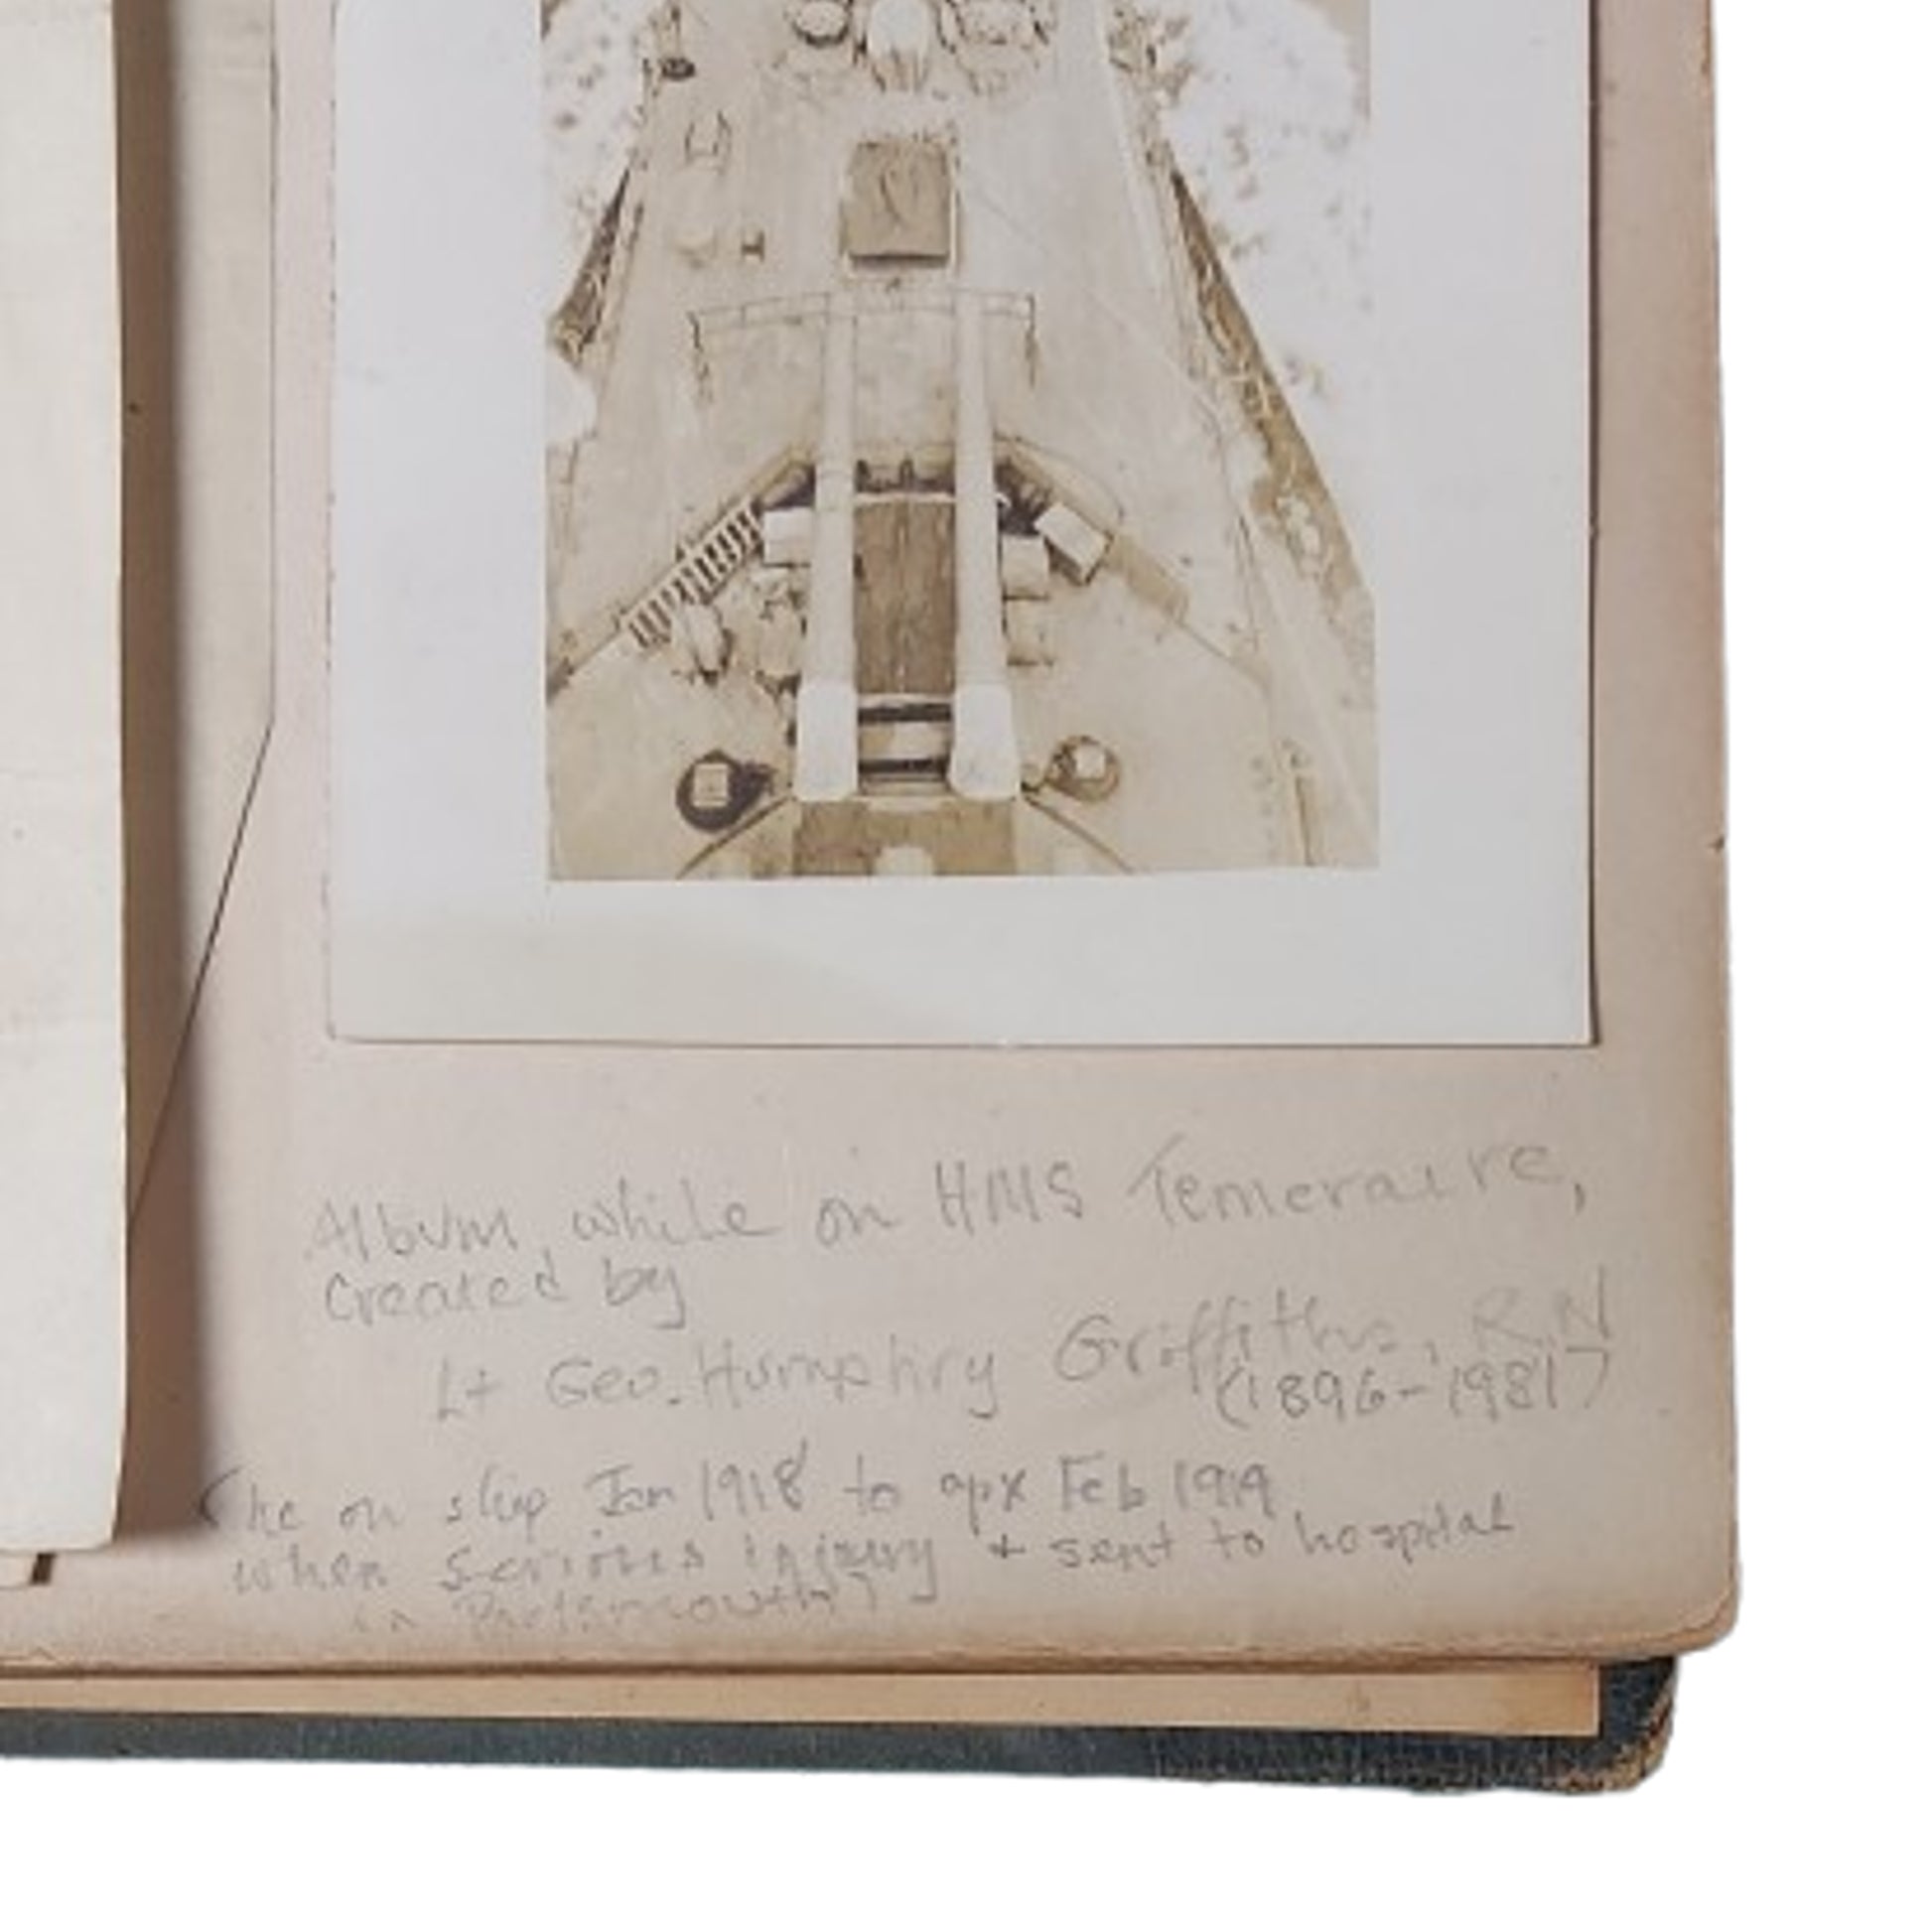 Album, while on HMS Temeraire,
created by
Lt Geo. Humphry Griffiths, R.N
(1896-1981)
(he on ship Jan 1918 to apx Feb 1919
when serious injury + sent to hospital
in Portsmouth)